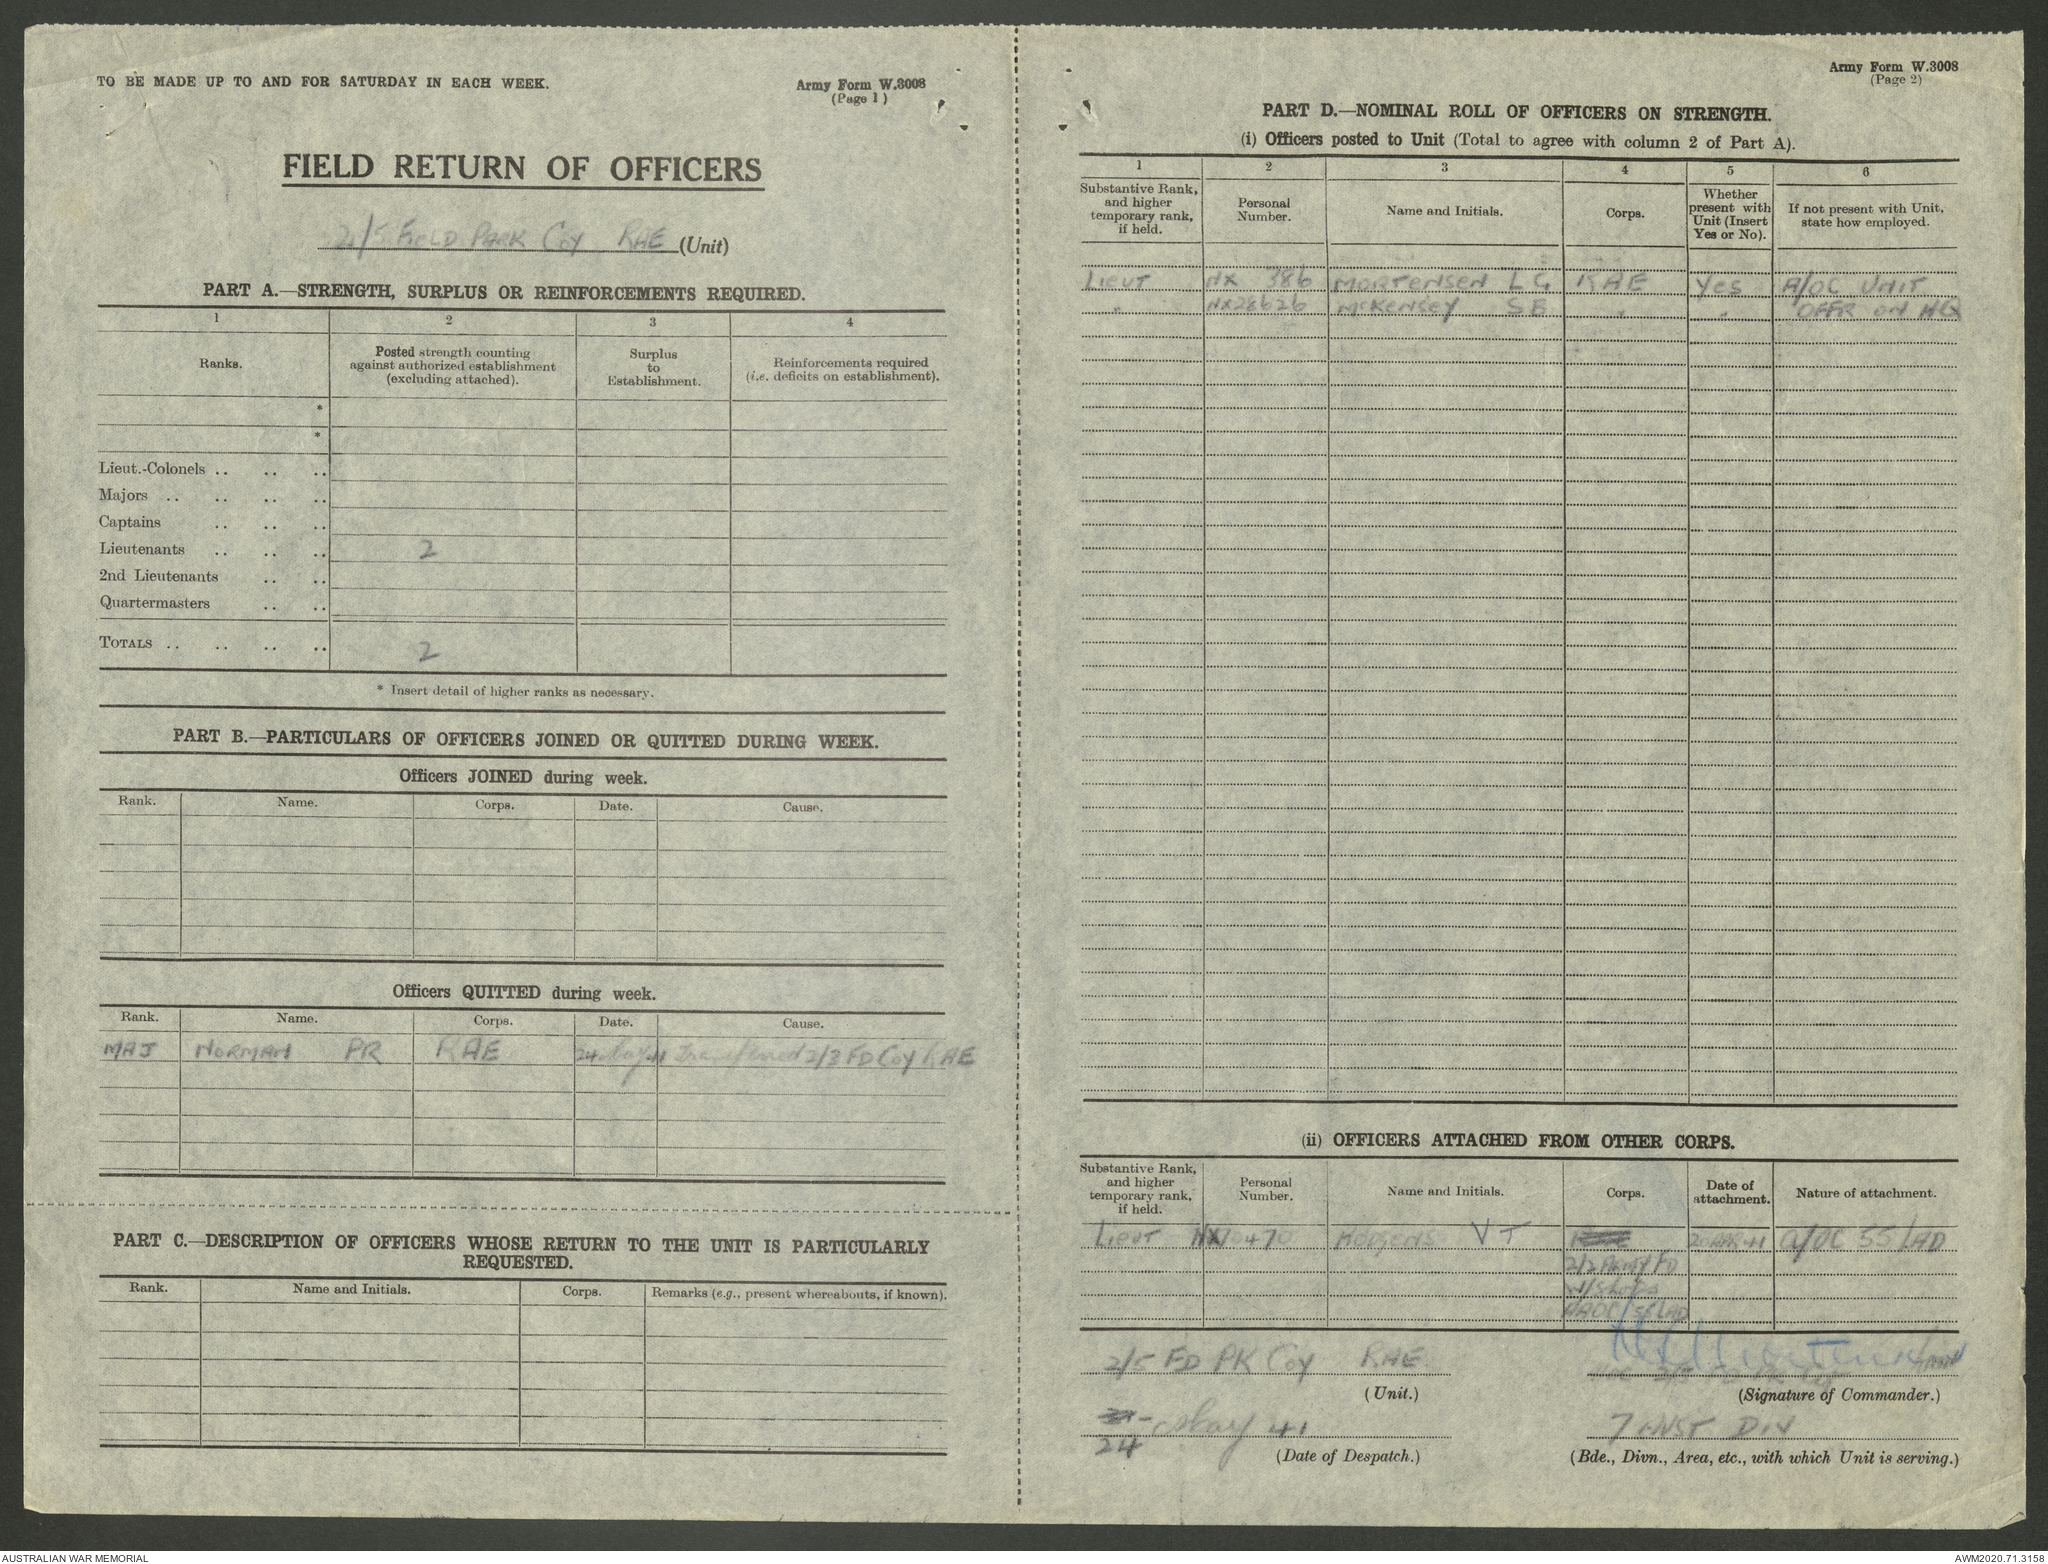 TO BE MADE UP TO AND FOR SATURDAY IN EACH WEEK.
Army Form W.3008
(Page 1)
FIELD RETURN OF OFFICERS
2/5 FIELD PARK COY RAE (Unit)
PART A.—STRENGTH, SURPLUS OR REINFORCEMENTS REQUIRED.
1 2 3 4
Ranks.
Posted strength counting against authorized establishment (excluding attached).
Surplus to Establishment.
Reinforcements required (i.e. deficits on establishment).
*
*
Lieut.-Colonels .. .. ..
Majors .. .. .. ..
Captains .. .. ..
Lieutenants .. .. .. 2
2nd Lieutenants .. ..
Quartermasters .. ..
TOTALS .. .. .. .. 2
* Insert detail of higher ranks as necessary.
PART B.—PARTICULARS OF OFFICERS JOINED OR QUITTED DURING WEEK.
Officers JOINED during week.
Rank. Name. Corps. Date. Cause.
Officers QUITTED during week.
Rank. Name. Corps. Date. Cause.
MAJ NORMAN PR RAE 24 May 41 Transferred 2/3 FD COY RAE
PART C.—DESCRIPTION OF OFFICERS WHOSE RETURN TO THE UNIT IS PARTICULARLY
REQUESTED.
Rank. Name and Initials. Corps. Remarks (e.g., present whereabouts, if known).
Army Form W.3008
(Page 2)
PART D.—NOMINAL ROLL OF OFFICERS ON STRENGTH.
(i) Officers posted to Unit (Total to agree with column 2 of Part A).
1 2 3 4 5 6
Substantive Rank, and higher temporary rank, if held.
Personal Number.
Name and Initials.
Corps.
Whether present with Unit (Insert Yes or No).
If not present with Unit, state how employed.
LIEUT NX 386 MORTENSEN LG RAE Yes A/OC UNIT
" NX28626 McKENSEY SB " " OFFR ON HQ
(ii) OFFICERS ATTACHED FROM OTHER CORPS.
Substantive Rank, and higher temporary rank, if held.
Personal Number.
Name and Initials.
Corps.
Date of attachment.
Nature of attachment.
LIEUT NX10470 VT 20 APR 41 A/OC 55 LAD
2/2 ARMY FD
W/Shops
AAOC/
2/5 FD PK COY RAE
(Unit.)
(Signature of Commander.)
24 May 41
(Date of Despatch.)
7 AUST DIV
(Bde., Divn., Area, etc., with which Unit is serving.)
AUSTRALIAN WAR MEMORIAL
AWM2020.71.3158